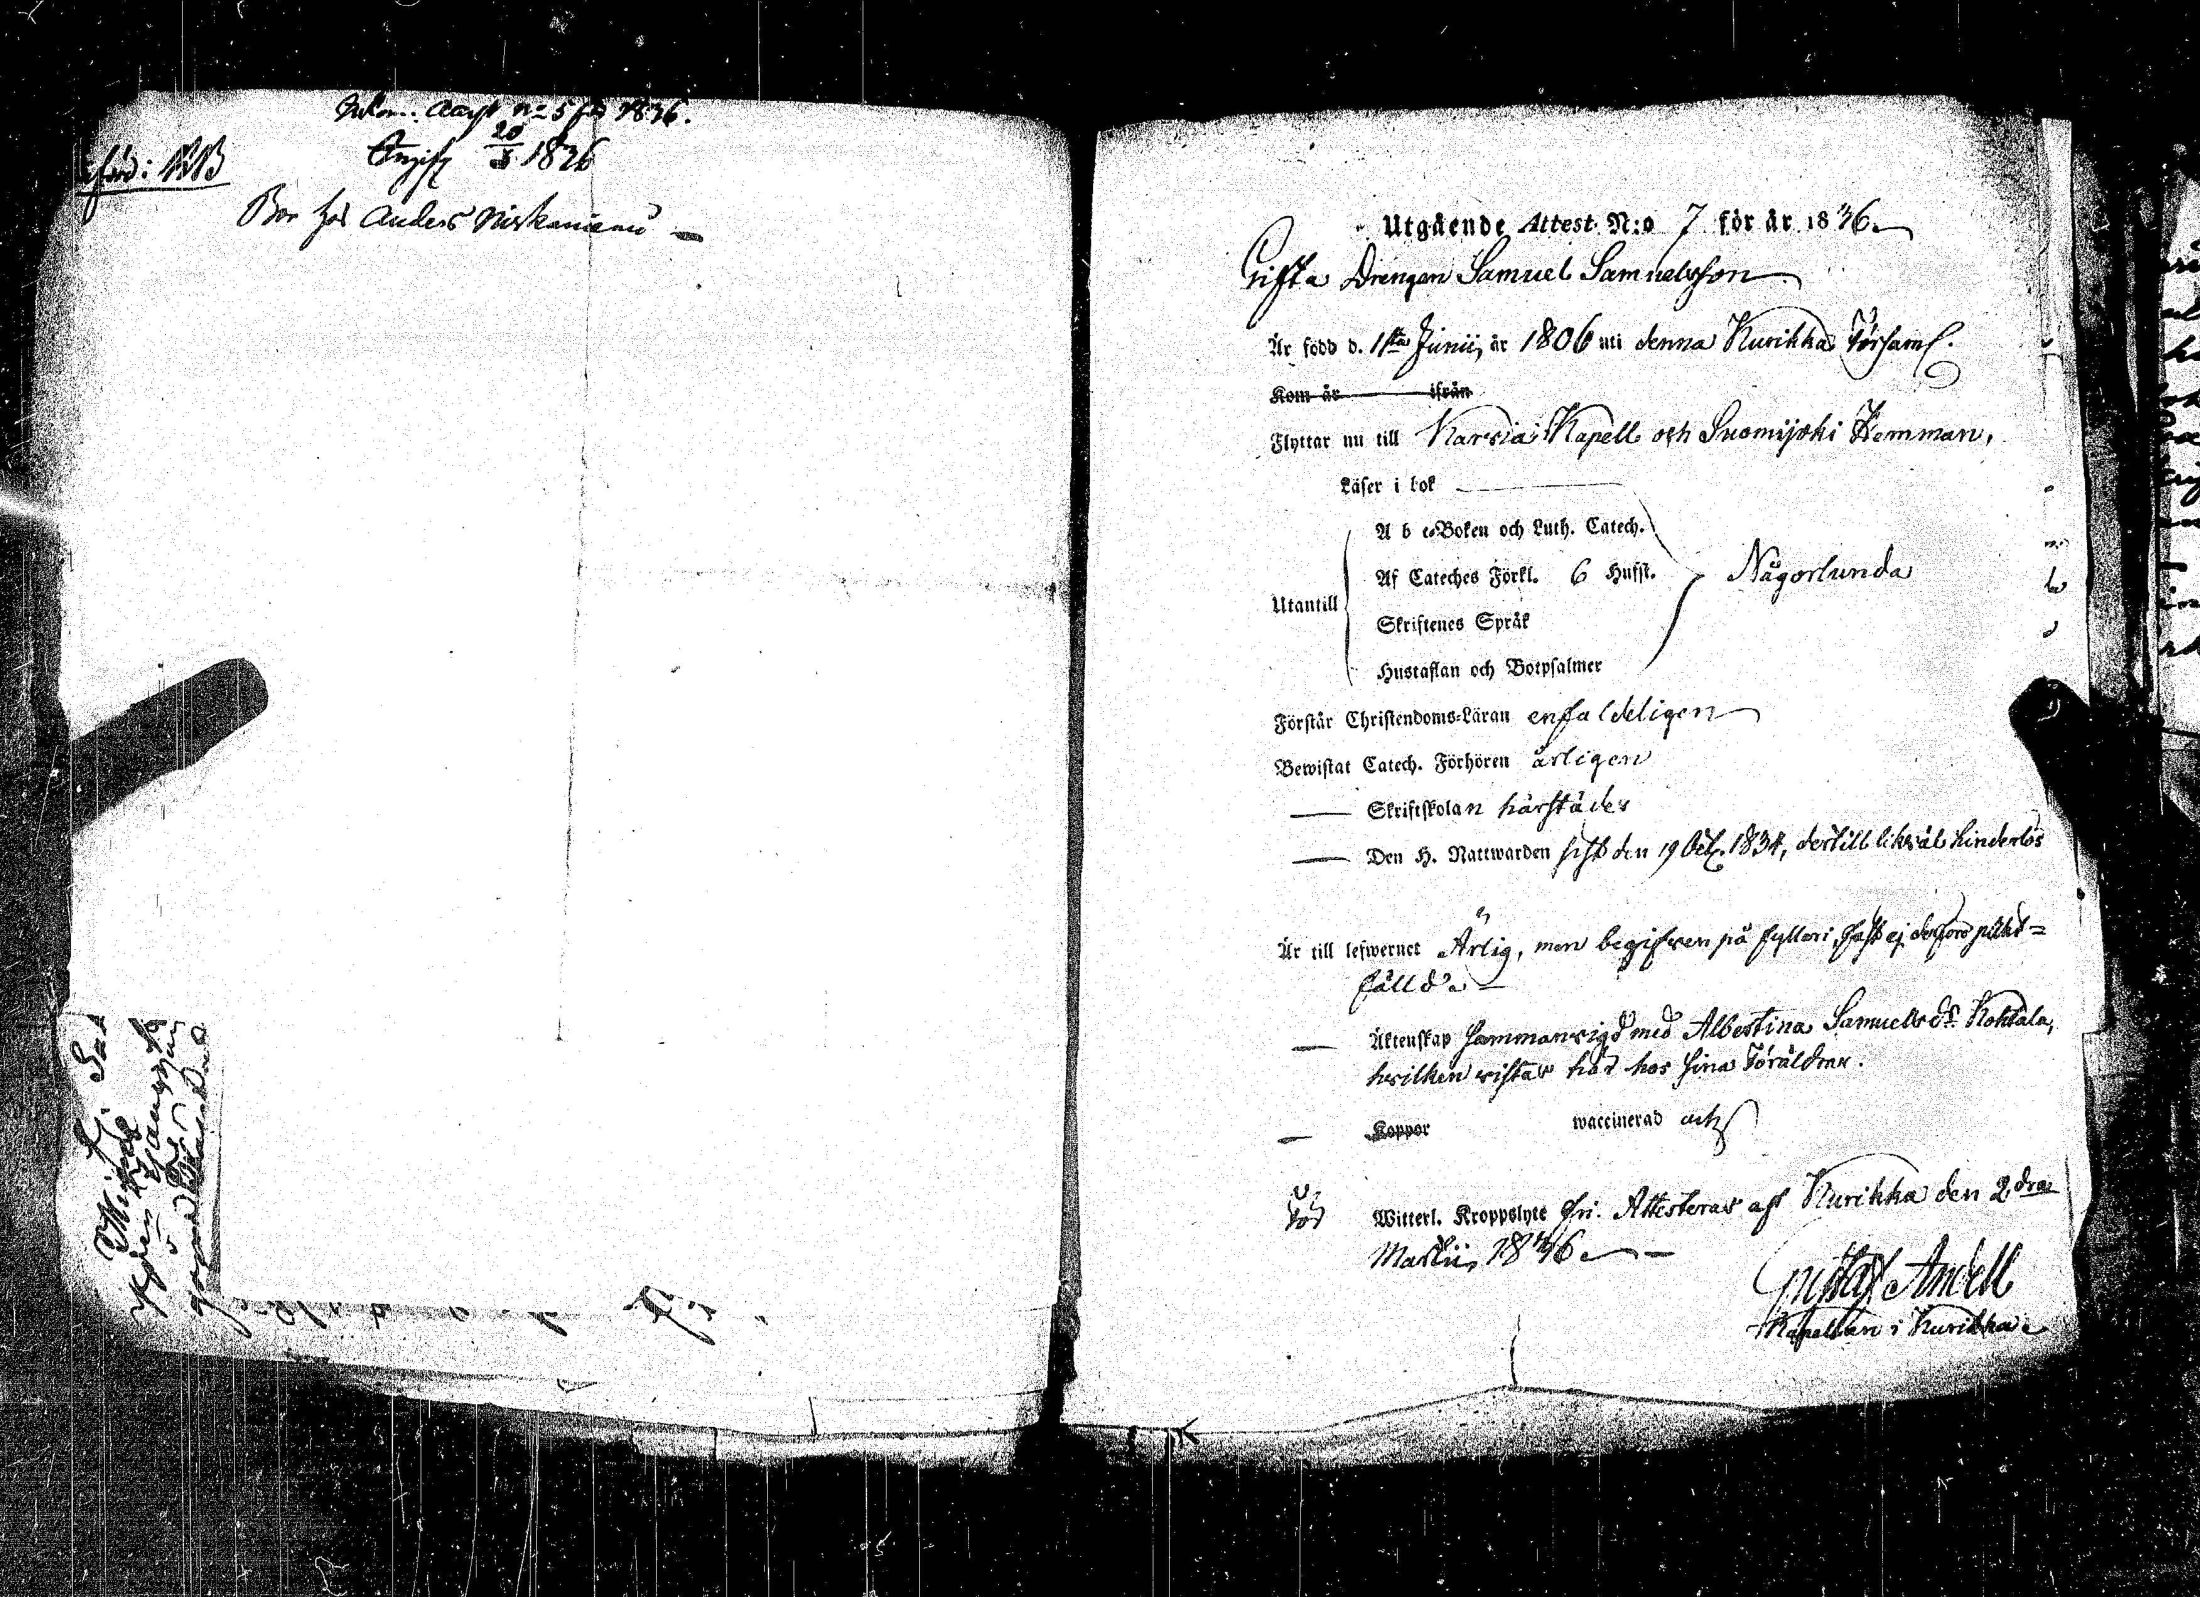 Inkom: n:o 5 1836.
20/3 1836
Bor hos Anders Niskaniemi
Utgående Attest N:o 7 för år 1836.
Gifta Drengen Samuel Samuelsson
Är född d. 1sta Junii, år 1806 uti denna Kurikka Församl.
Kom år ifrån
Flyttar nu till Karvia Kapell och Suomijoki Hemman,
Läser i bok
A b c-Boken och Luth. Catech.
Af Cateches Förkl. 6 Hufst.
Någorlunda
Utantill
Skriftenes Språk
Hustaflan och Botpsalmer
Förstår Christendoms-Läran enfaldeligen
Bewistat Catech. Förhören årligen
Skriftskolan härstädes
Den H. Nattwarden sist den 19 Oct. 1834, dertill likväl hinderlös
Är till lefwernet Ärlig, men begifven på fylleri, fast ej derföre plikt-
fälld.
Äktenskap sammanvigd med Albertina Samuelsdr Kohtala,
hvilken vistas här hos sina Föräldrar.
Koppor waccinerad
för Witterl. Kroppslyte fri. Attesteras af Kurikka den 2dra
Martii, 1836.
Gustaf Andell
Kapellan i Kurikka